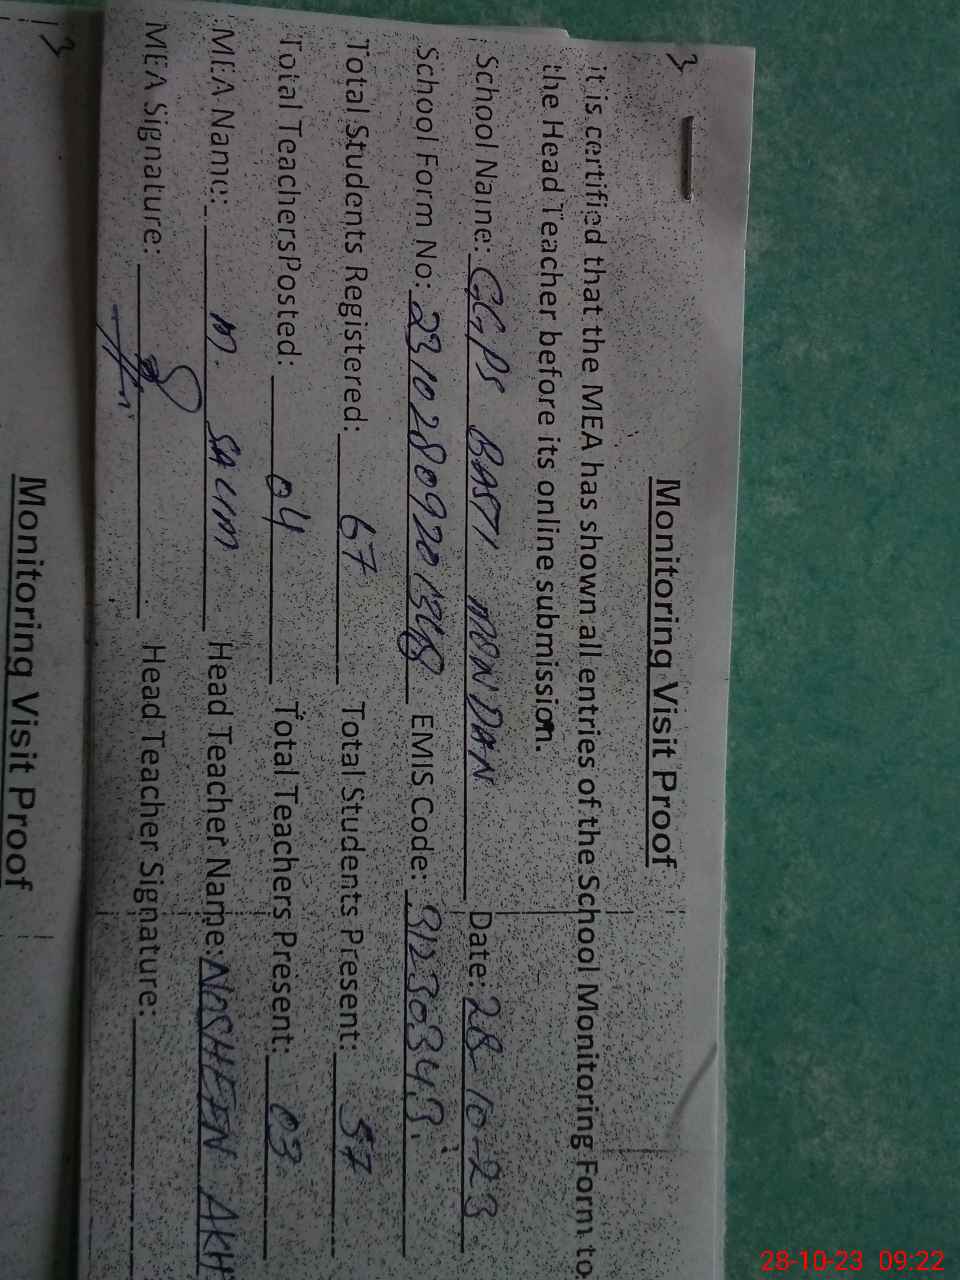 3
Monitoring Visit Proof
it is certified that the MEA has shown all entries of the School Monitoring Form to
the Head Teacher before its online submission.
School Name: GGPS BASTI MONDAN Date: 28-10-23
School Form No: EMIS Code: 31230343
Total Students Registered: 67 Total Students Present: 57
Total TeachersPosted: 04 Total Teachers Present: 03
MEA Name: M. SALIM Head Teacher Name: NOSHEEN AKH
MEA Signature: Head Teacher Signature:
3
Monitoring Visit Proof
28-10-23 09:22